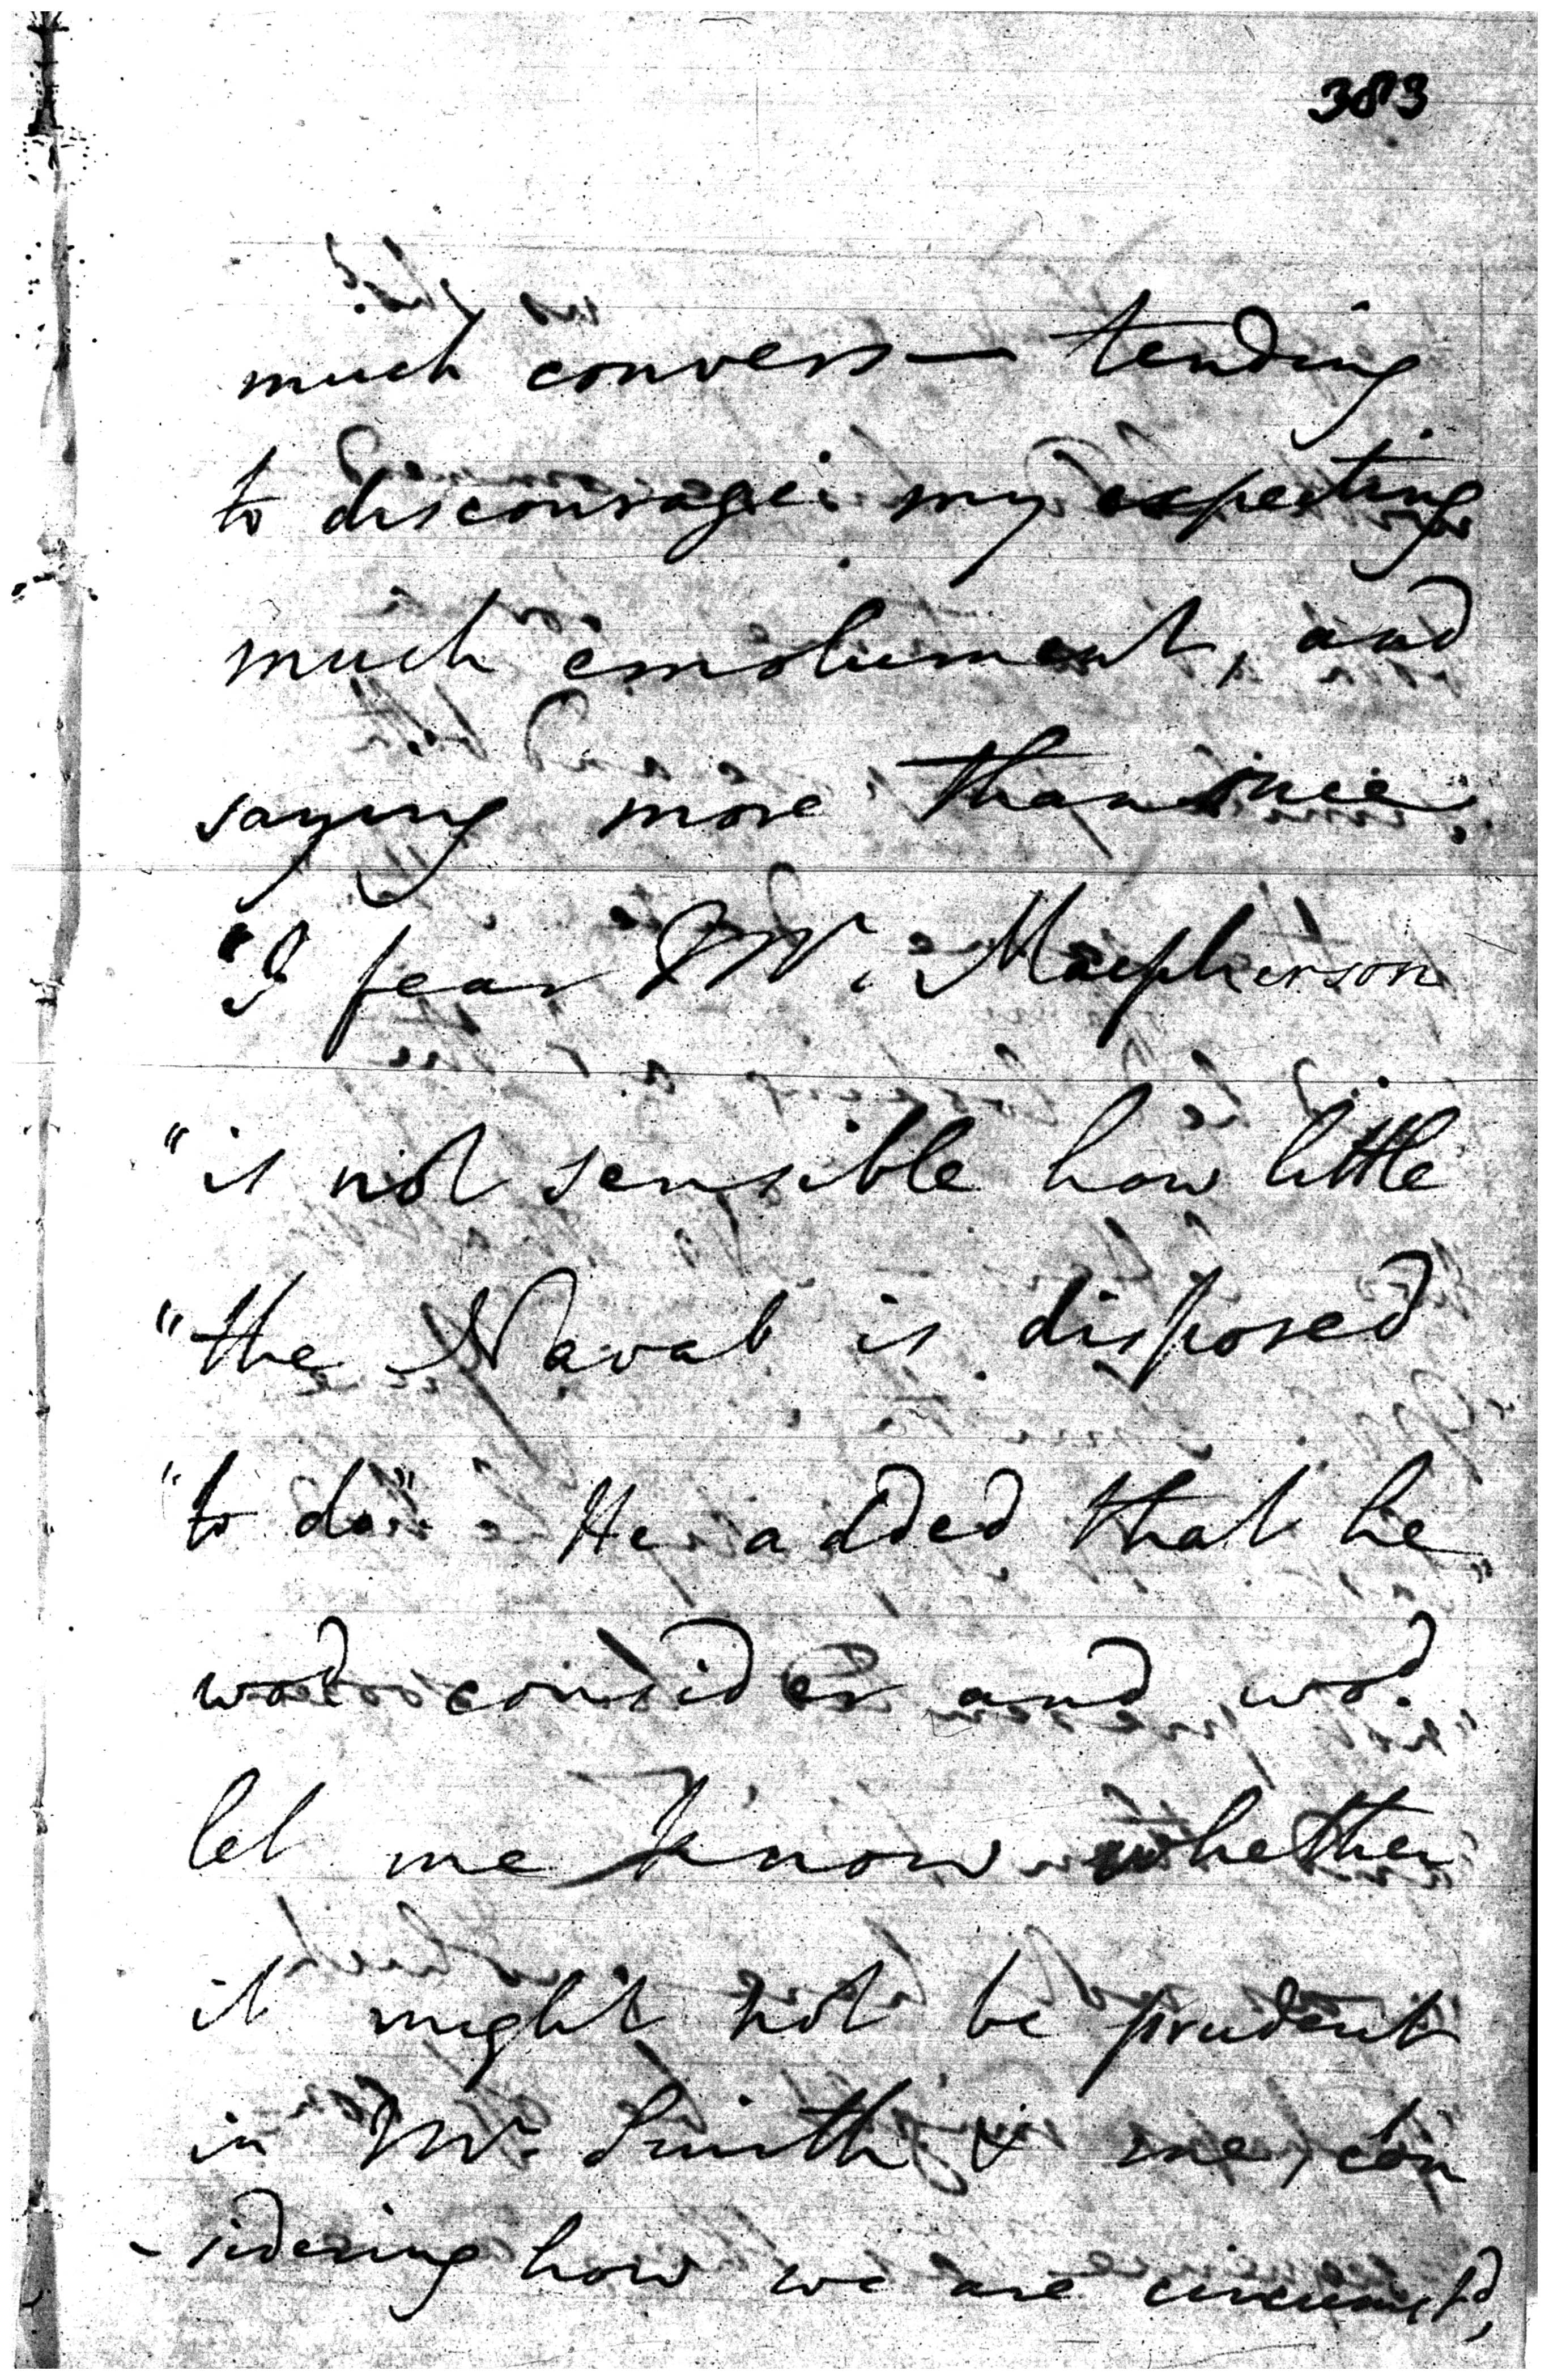 383
much convers— tending
to discourage my expecting
much emolument, and
saying more than once
"I fear Mr. Macpherson
"is not sensible how little
"the Navab is disposed
"to do" He added that he
wod consider and wod.
let me know whether
it might not be prudent
in Mr. Smith & me, con
-sidering how we are circumstd,